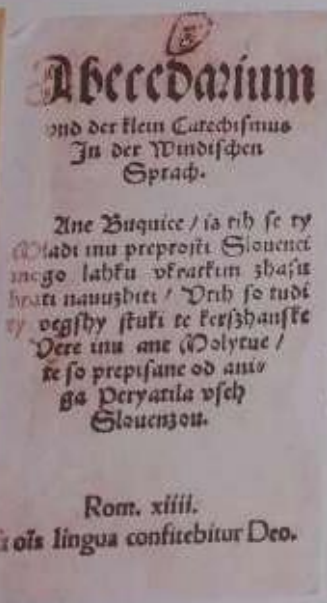 Abecedarium
vnd der klein Catechismus
In der Windischen
Sprach.
Ane Buquice / is tih se ty
Mladi inu preprosti Slouenci
mogo lahku vkratkim zhasu
brati nauuzhiti / Vtih so tudi
ty vegshy stuki te kerszhanske
Vere inu ane Molytue /
te so prepisane od aniga
Peryatila vseh
Slouenzou.
Rom. xiiii.
oīs lingua confitebitur Deo.